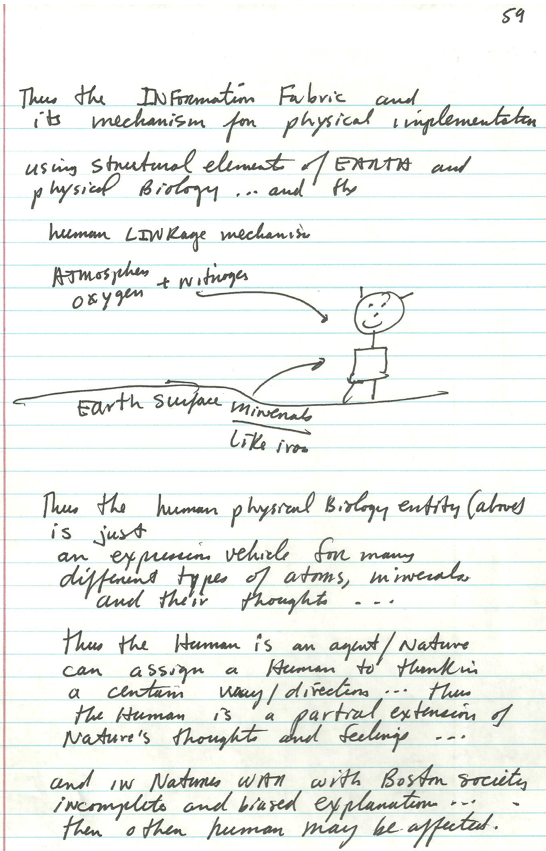 59
Thus the INFormation Fabric and
its mechanism for physical implementation
using structural elements of EARTH and
physical Biology ... and the
human LINKage mechanism
Atmosphere
oxygen + nitrogen
Earth Surface minerals
like iron
Thus the human physical Biology entity (above)
is just
an expression vehicle for many
different types of atoms, minerals
and their thoughts ...
Thus the Human is an agent/Nature
can assign a Human to think in
a certain way/direction ... thus
the Human is a partial extension of
Nature's thoughts and feelings ...
and in Natures WAR with Boston society
incomplete and biased explanation ...
then other human may be affected.